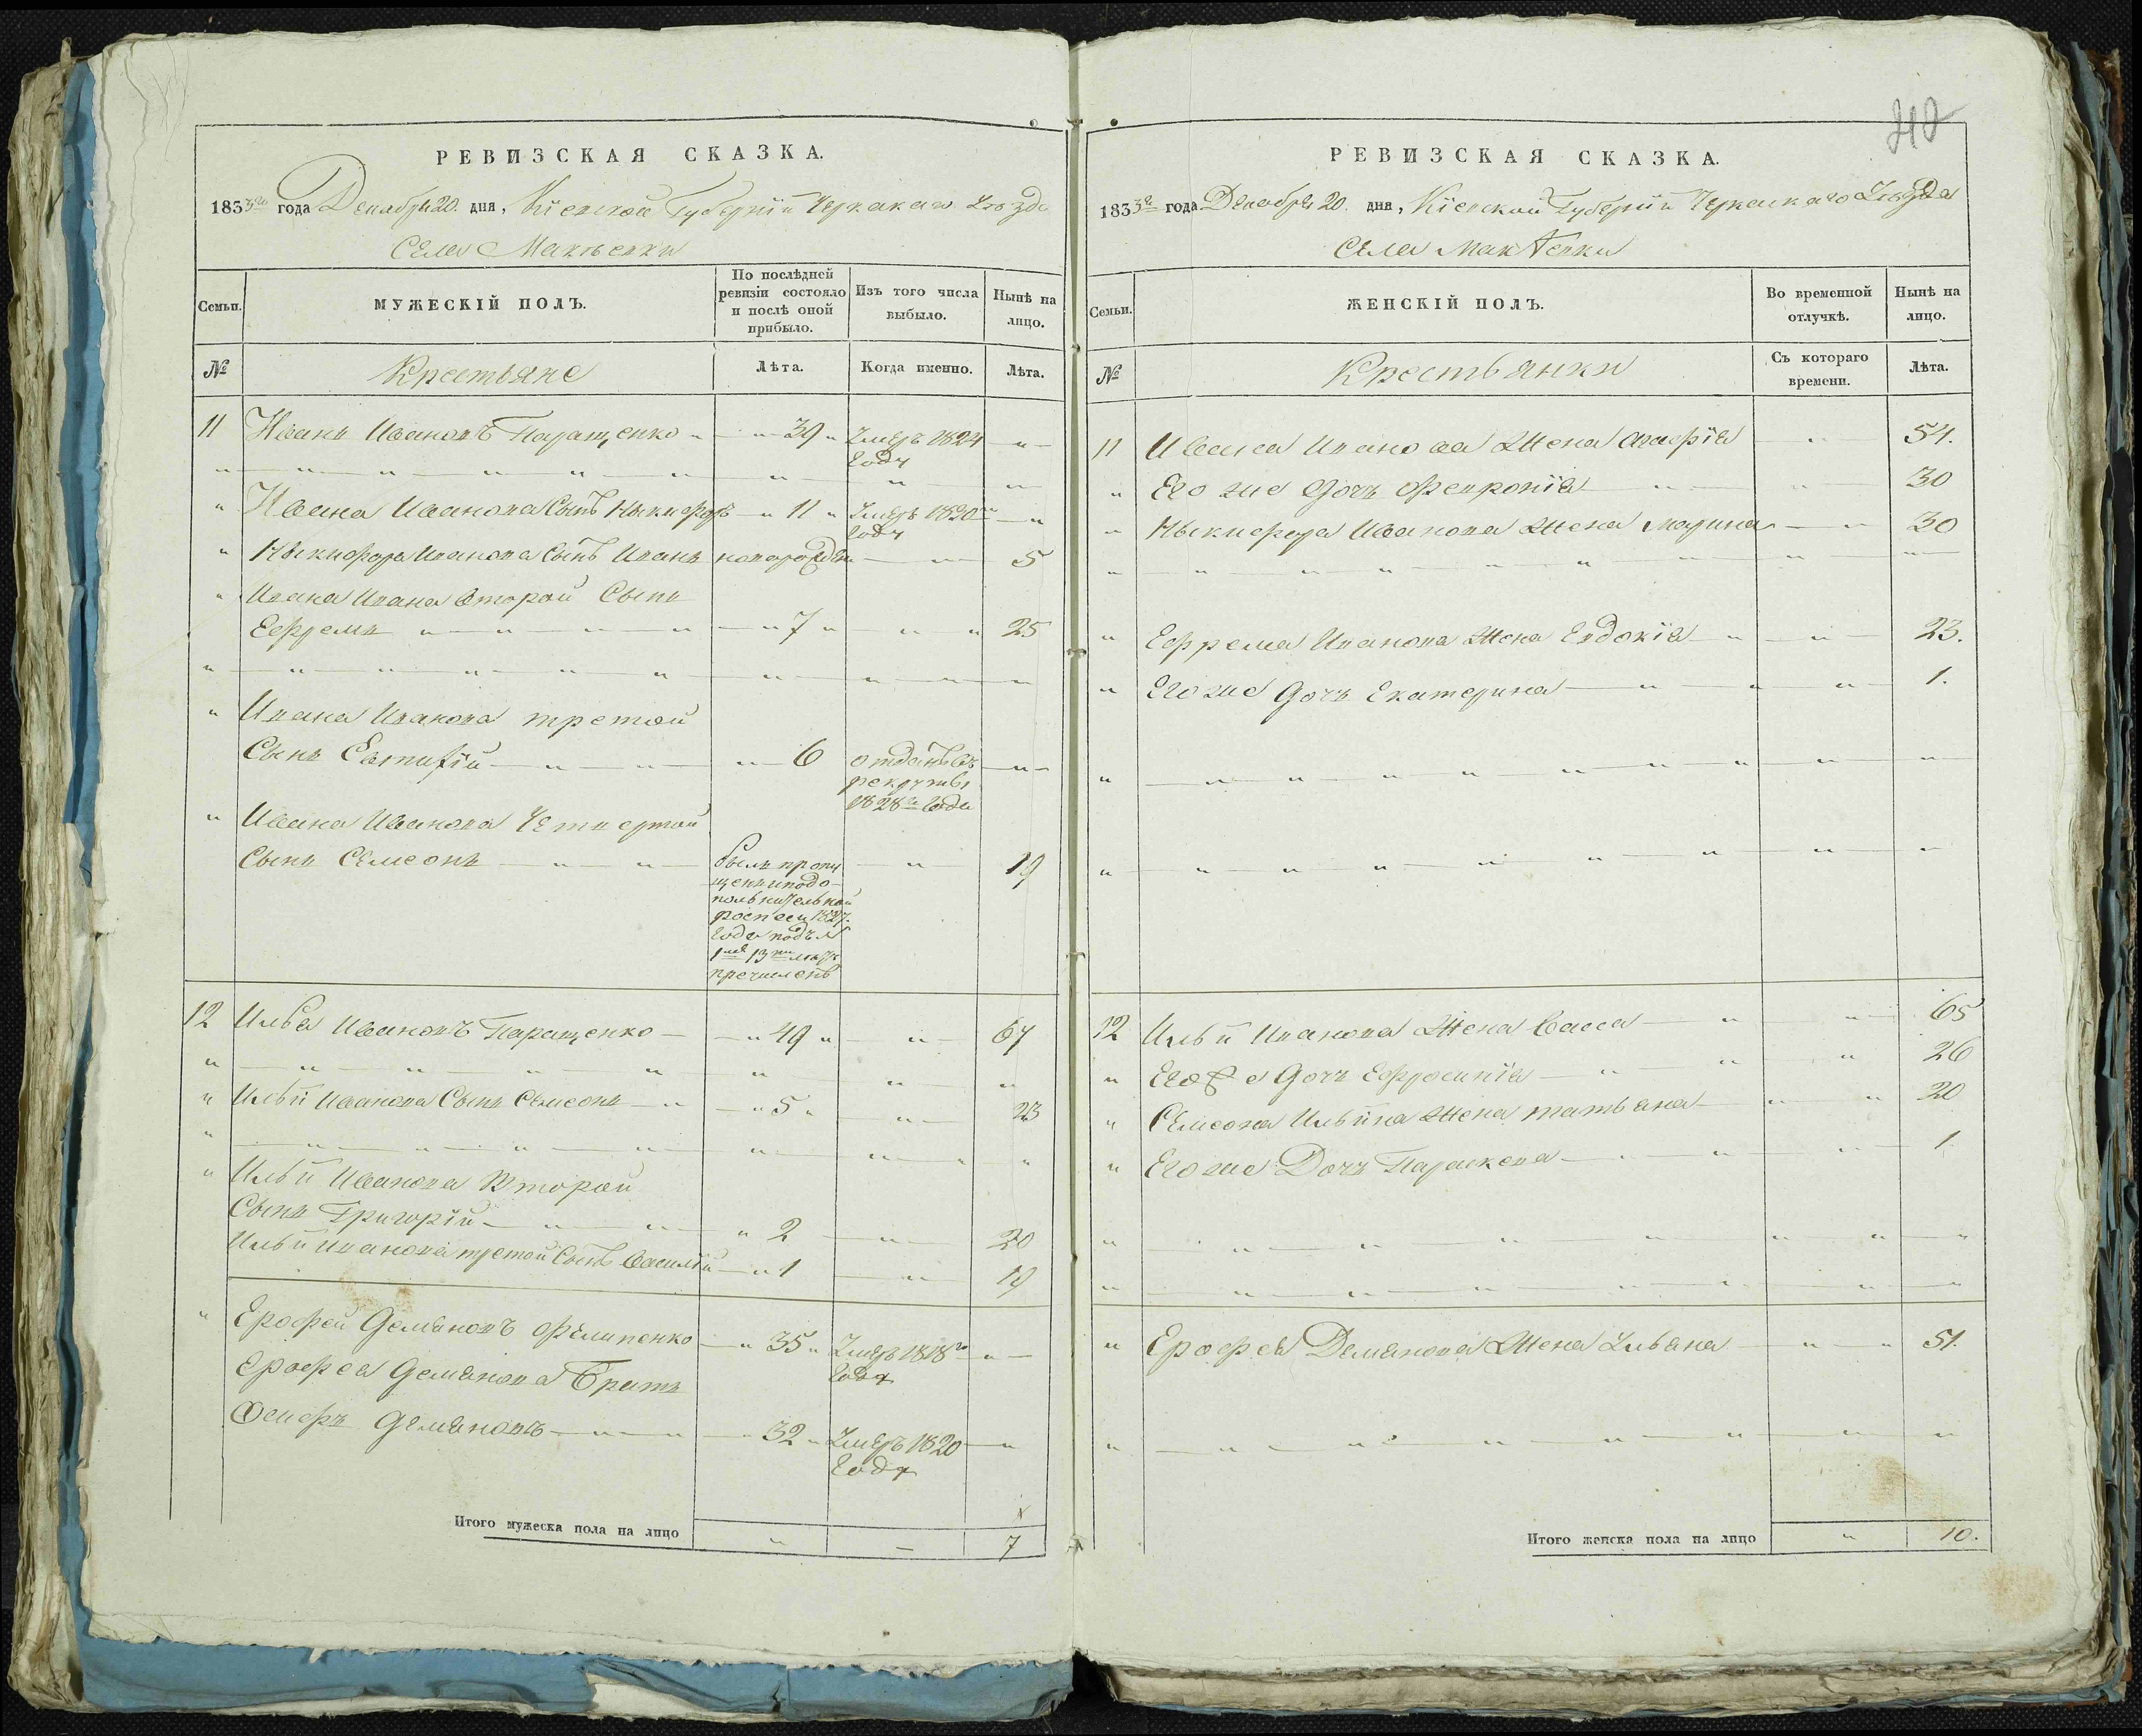 РЕВИЗСКАЯ СКАЗКА.
1833го года Декабря 20. дня, Кіевской Губерніи Черкаскаго Уѣзда
Села Макѣевки
Семьи.
МУЖЕСКІЙ ПОЛЪ.
По послѣдней ревизіи состояло и послѣ оной прибыло.
Изъ того числа выбыло.
Нынѣ на лицо.
№
Крестьяне
Лѣта.
Когда именно.
Лѣта.
11 Иванъ Ивановъ Паращенко 39 Умеръ 1824
году
Ивана Иванова Сынъ Никифоръ 11 Умеръ 1820го
году
Никифора Иванова Сынъ Иванъ новорожден 5
Ивана Ивана Второй Сынъ
Ефремъ 7 25
Ивана Иванова третой
Сынъ Евтифій 6 отданъ въ
рекруты
1828го года
Ивана Иванова Четвертой
Сынъ Семсонъ 19
былъ пропу
щенъ и подо-
полнительной
росписи 1827.
года подъ №
1мъ 13ти лѣтъ
пречисленъ
12 Илья Ивановъ Паращенко 49 67
Ильи Иванова Сынъ Семсонъ 5 23
Ильи Иванова Второй
Сынъ Григорій 2 20
Ильи Иванова третой Сынъ Василій 1 19
Ерофей Демяновъ Филипенко 35 Умеръ 1818го
году
Ерофея Демянова Братъ
Осифъ Демяновъ 32 Умеръ 1820
году
Итого мужеска пола на лицо 7
РЕВИЗСКАЯ СКАЗКА.
1833го года Декабря 20. дня, Кіевской Губерніи Черкаскаго Уѣзда
Села Макѣевки
Семьи.
ЖЕНСКІЙ ПОЛЪ.
Во временной отлучкѣ.
Нынѣ на лицо.
№
Крестьянки
Съ котораго времени.
Лѣта.
11 Ивана Иванова Жена Агафія 54.
Его же Дочь Февронія 30
Никифора Иванова Жена Марина 30
Ефрема Иванова Жена Евдокія 23.
Его же Дочь Екатерина 1.
12 Ильи Иванова Жена Васса 65
Его же Дочь Ефросинія 26
Семсона Ильина Жена татьяна 20
Его же Дочь Параскева 1
Ерофея Демянова Жена Ульяна 51.
Итого женска пола на лицо 10.